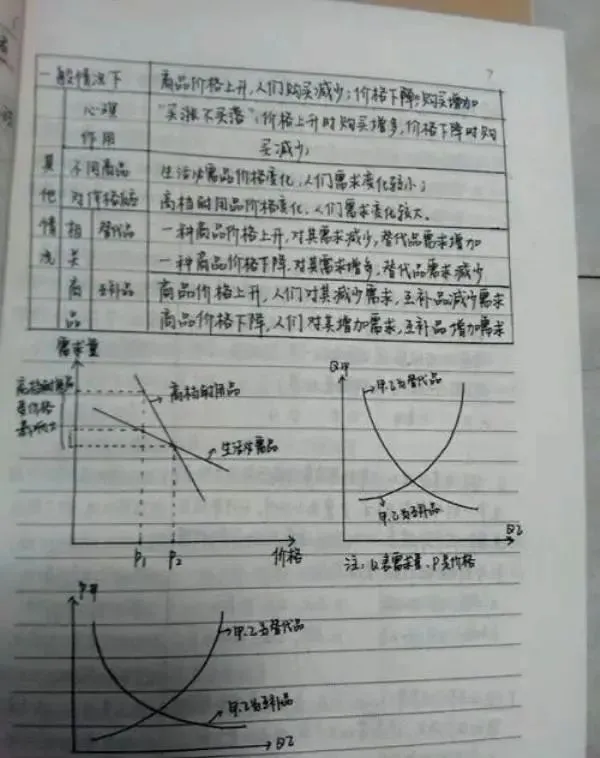 7
一般情况下 商品价格上升，人们购买减少；价格下降，购买增加
心理 "买涨不买落"：价格上升时购买增多，价格下降时购
作用 买减少；
其 不同商品 生活必需品价格变化，人们需求变化较小；
他 对价格 高档耐用品价格变化，人们需求变化较大。
情 相 替代品 一种商品价格上升，对其需求减少，替代品需求增加
况 关 一种商品价格下降，对其需求增多，替代品需求减少
商 互补品 商品价格上升，人们对其减少需求，互补品减少需求
品 商品价格下降，人们对其增加需求，互补品增加需求
需求量
高档耐用品
受价格
高档耐用品
生活必需品
P1 P2 价格
Q甲
甲.乙为替代品
甲.乙为互补品
Q乙
注：Q是需求量、P是价格
P甲
甲.乙为替代品
甲.乙为互补品
Q乙